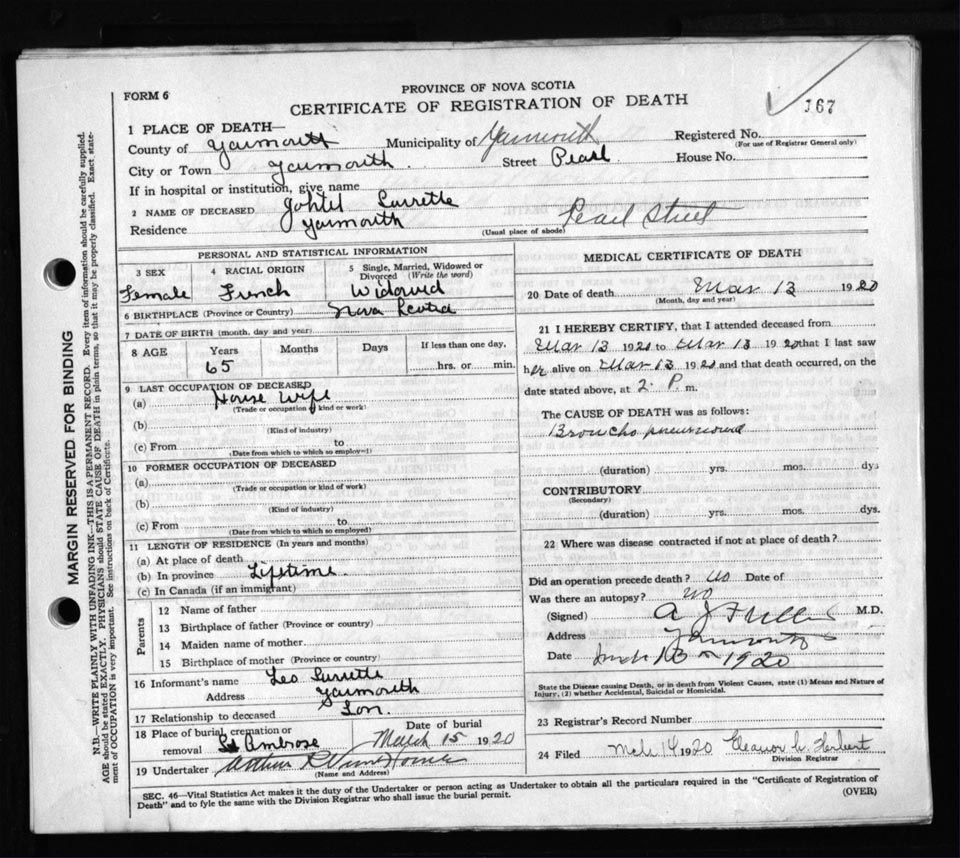 FORM 6
PROVINCE OF NOVA SCOTIA
CERTIFICATE OF REGISTRATION OF DEATH
167
1 PLACE OF DEATH—
County of Yarmouth Municipality of Yarmouth Registered No.
(For use of Registrar General only)
City or Town Yarmouth Street Pearl House No.
If in hospital or institution, give name
2 NAME OF DECEASED Surrette
Residence Yarmouth (Usual place of abode) Pearl Street
PERSONAL AND STATISTICAL INFORMATION
3 SEX 4 RACIAL ORIGIN 5 Single, Married, Widowed or Divorced (Write the word)
Female French Widowed
6 BIRTHPLACE (Province or Country) Nova Scotia
7 DATE OF BIRTH (month, day and year)
8 AGE Years Months Days If less than one day,
65 hrs. or min.
9 LAST OCCUPATION OF DECEASED
(a) House Wife
(Trade or occupation, kind or work)
(b)
(Kind of industry)
(c) From to
(Date from which to which so employed)
10 FORMER OCCUPATION OF DECEASED
(a)
(Trade or occupation or kind of work)
(b)
(Kind of industry)
(c) From to
(Date from which to which so employed)
11 LENGTH OF RESIDENCE (In years and months)
(a) At place of death
(b) In province Lifetime.
(c) In Canada (if an immigrant)
Parents
12 Name of father
13 Birthplace of father (Province or country)
14 Maiden name of mother
15 Birthplace of mother (Province or country)
16 Informant's name Leo Surrette
Address Yarmouth
17 Relationship to deceased Son.
18 Place of burial, cremation or removal St Ambrose
Date of burial March 15 1920
19 Undertaker Arthur
(Name and Address)
MEDICAL CERTIFICATE OF DEATH
20 Date of death Mar 13 1920
(Month, day and year)
21 I HEREBY CERTIFY, that I attended deceased from
Mar 13 1920 to Mar 13 1920 that I last saw
her alive on Mar 13 1920 and that death occurred, on the
date stated above, at 2. P. m.
The CAUSE OF DEATH was as follows:
Broncho pneumonia
(duration) yrs. mos. dys
CONTRIBUTORY
(Secondary)
(duration) yrs. mos. dys.
22 Where was disease contracted if not at place of death?
Did an operation precede death? no Date of
Was there an autopsy? no
(Signed) A J Fuller M.D.
Address Yarmouth
Date 13 1920
State the Disease causing Death, or in death from Violent Causes, state (1) Means and Nature of
Injury, (2) whether Accidental, Suicidal or Homicidal.
23 Registrar's Record Number
24 Filed Mch 14 1920 Eleanor Herbert
Division Registrar
SEC. 46—Vital Statistics Act makes it the duty of the Undertaker or person acting as Undertaker to obtain all the particulars required in the "Certificate of Registration of
Death" and to fyle the same with the Division Registrar who shall issue the burial permit. (OVER)
MARGIN RESERVED FOR BINDING
N.B.—WRITE PLAINLY WITH UNFADING INK—THIS IS A PERMANENT RECORD. Every item of information should be carefully supplied.
AGE should be stated EXACTLY. PHYSICIANS should STATE CAUSE OF DEATH in plain terms, so that it may be properly classified. Exact state-
ment of OCCUPATION is very important. See instructions on back of Certificate.